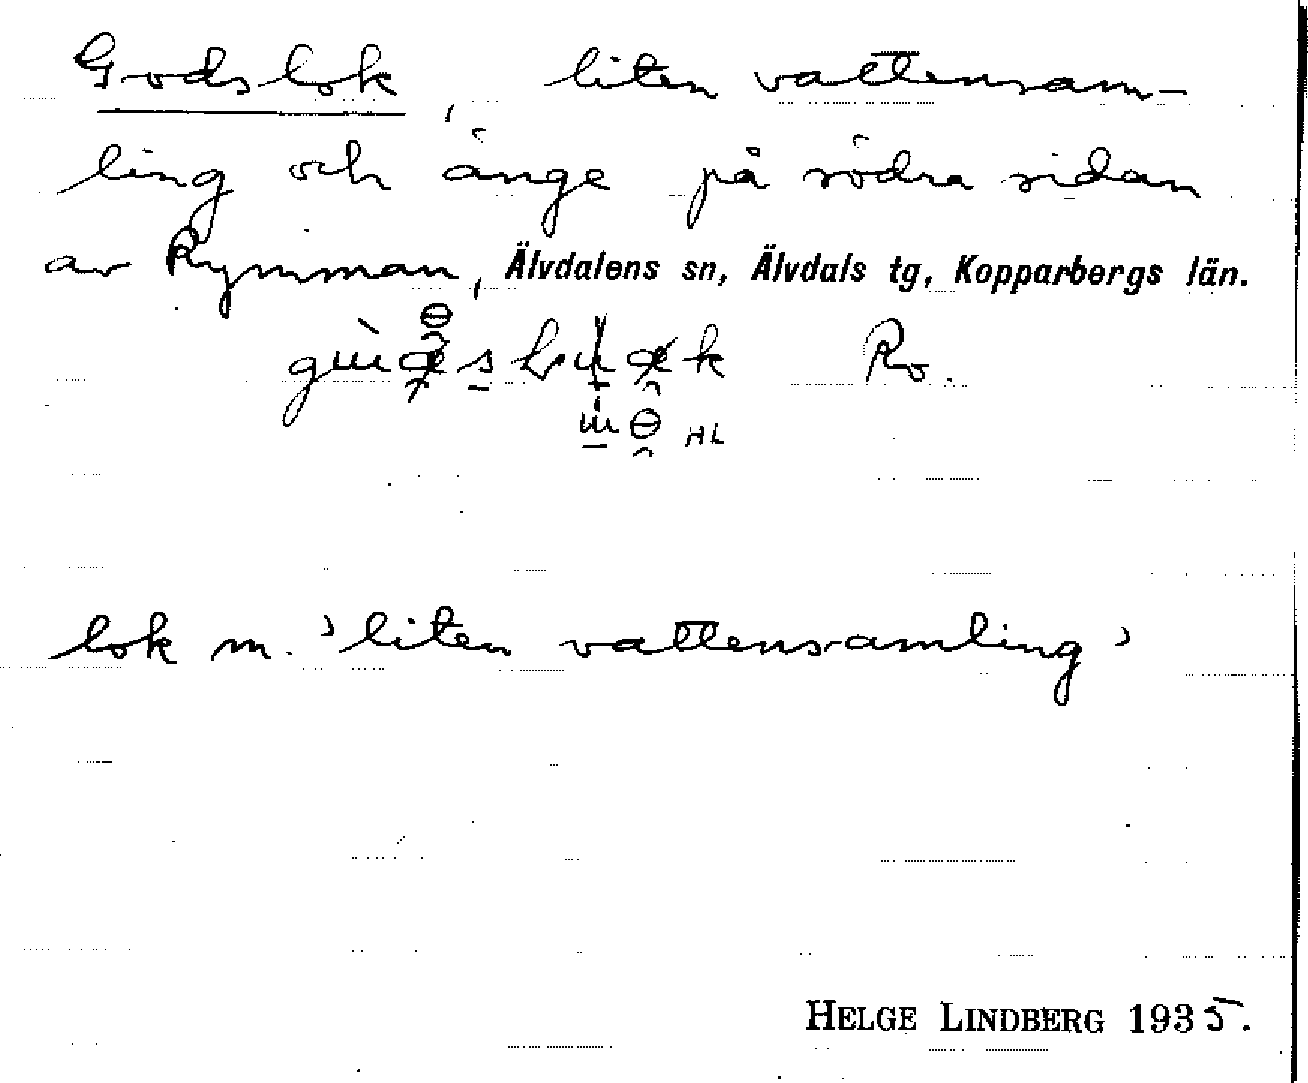 Godslok, liten vattensam-
ling och änge på södra sidan
av Rymman, Älvdalens sn, Älvdals tg, Kopparbergs län.
Ro.
HL
lok m. 'liten vattensamling'
HELGE LINDBERG 1935.